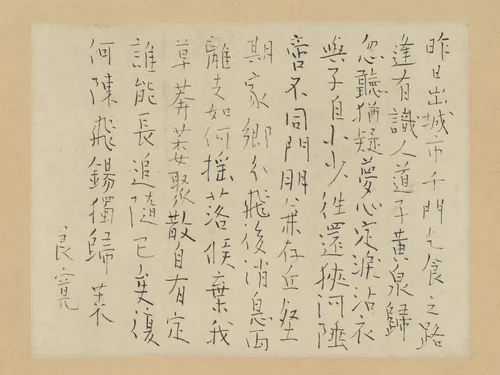 昨日出城市千門乞食之路
逢有識人道子黄泉歸
忽聽猶疑夢心定淚沾衣
與子自小少往還狹河陲
啻不同門朋兼存丘壑
期家郷分飛後消息兩
離支如何搖落候棄我
草莽萎聚散自有定
誰能長追隨已矣復
何陳飛錫獨歸
良寛